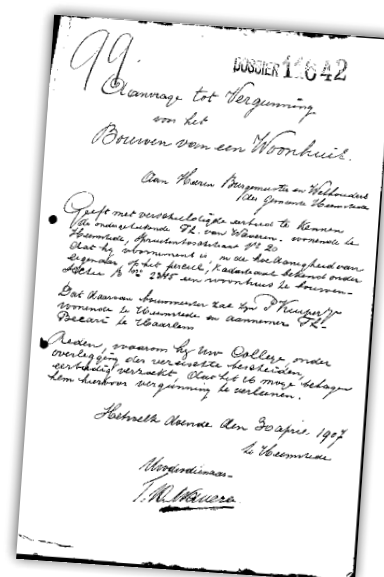 99.
DOSSIER 11642
Aanvrage tot Vergunning
van het
Bouwen van een Woonhuis.
Aan Heeren Burgemeester en Wethouders
der Gemeente Heemstede
Geeft met verschuldigde eerbied te kennen
de ondergeteekende Th. van wonende te
Heemstede, No 20
dat hij voornemens is, in de hoedanigheid van
eigenaar op het perceel, Kadastraal bekend onder
Sectie B No 2345 een woonhuis te bouwen.
Dat daarvan bouwmeester zal zijn P Kuiper Jr
wonende te Heemstede en aannemer Th.
te Haarlem
Reden, waarom hij Uw College onder
overlegging der vereischte bescheiden,
eerbiedig verzoekt, dat het U moge behagen
hem hiervoor vergunning te verleenen.
Hetwelk doende den 30 april 1907
te Heemstede
Uwe dienaar